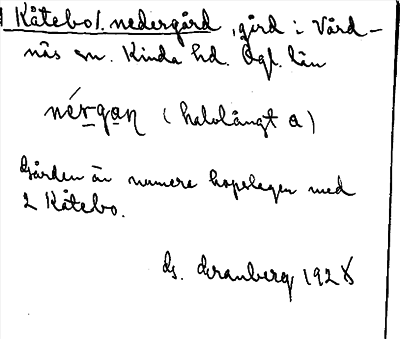 1 Kåtebo/. nedergård, gård i Vård-
näs sn. Kinda hd. Ögl. län
nérgaṇ (halvlångt a)
Gården är numera hopslagen med
2 Kåtebo.
Cranberg 192